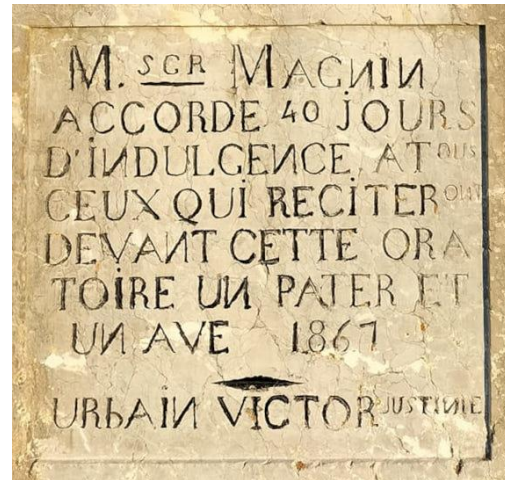 M. SGR MAGNIN
ACCORDE 40 JOURS
D'INDULGENCE, A TOUS
CEUX QUI RECITERONT
DEVANT CETTE ORA
TOIRE UN PATER ET
UN AVE 1867
URBAIN VICTOR JUSTINIE